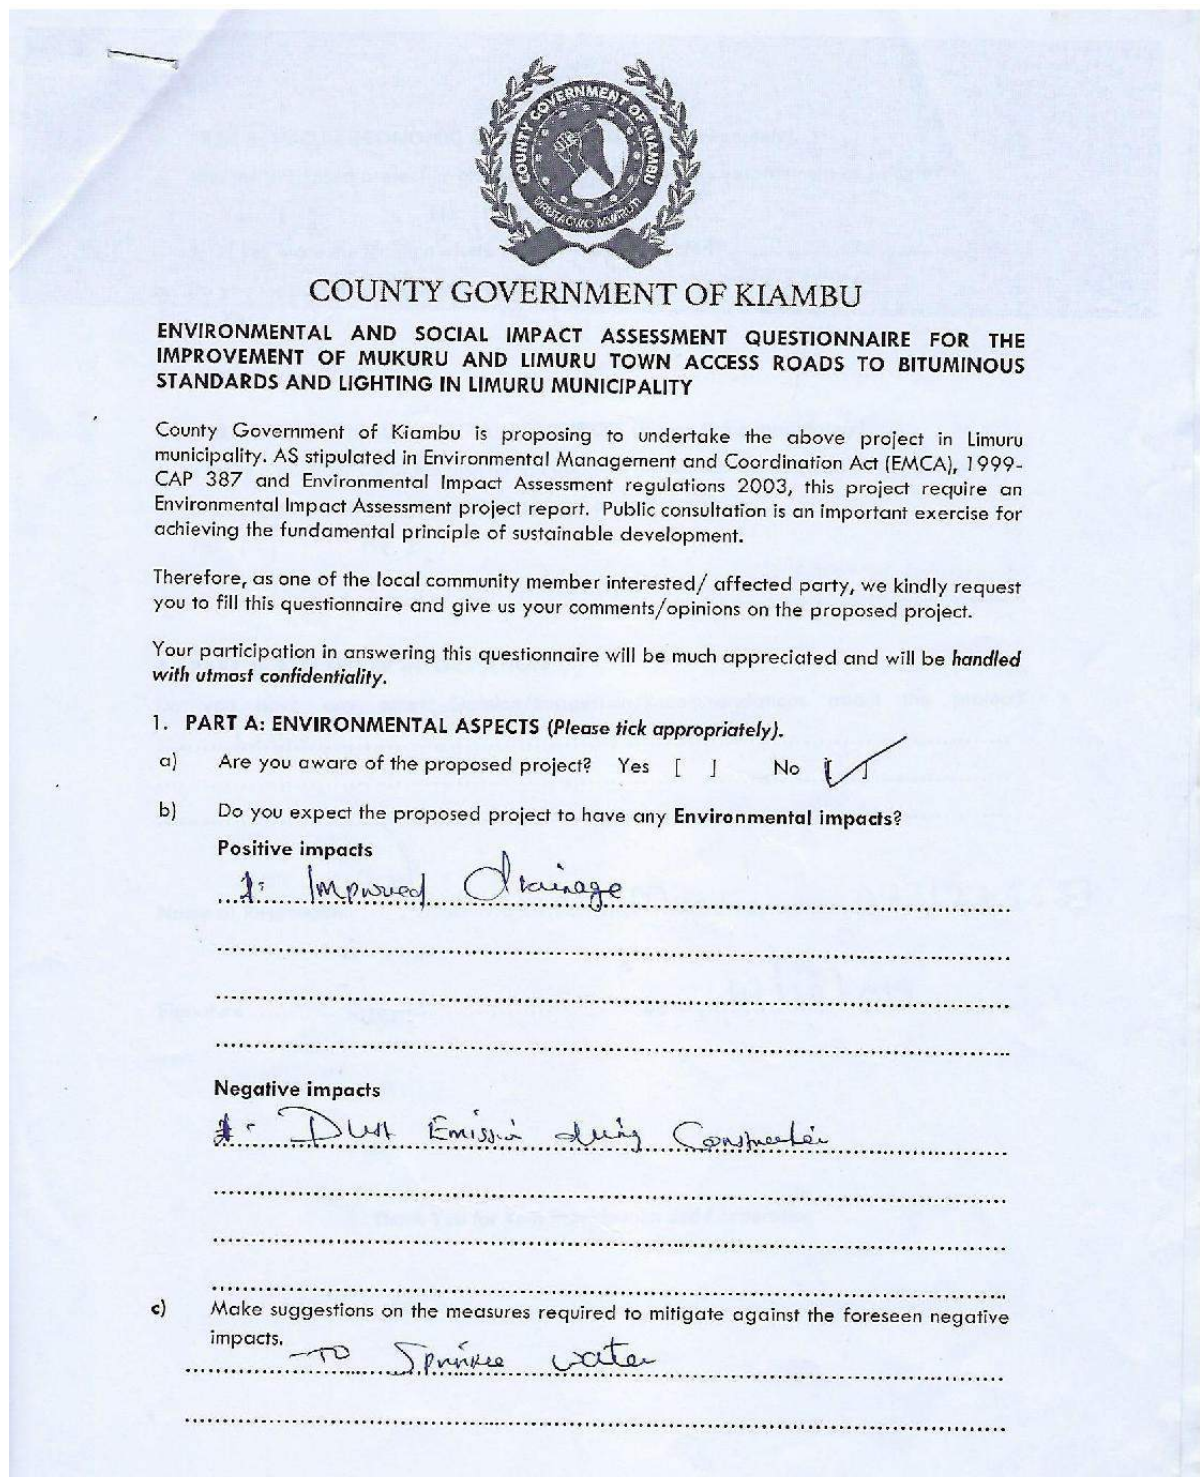 COUNTY GOVERNMENT OF KIAMBU
COUNTY GOVERNMENT OF KIAMBU
ENVIRONMENTAL AND SOCIAL IMPACT ASSESSMENT QUESTIONNAIRE FOR THE
IMPROVEMENT OF MUKURU AND LIMURU TOWN ACCESS ROADS TO BITUMINOUS
STANDARDS AND LIGHTING IN LIMURU MUNICIPALITY
County Government of Kiambu is proposing to undertake the above project in Limuru
municipality. AS stipulated in Environmental Management and Coordination Act (EMCA), 1999-
CAP 387 and Environmental Impact Assessment regulations 2003, this project require an
Environmental Impact Assessment project report. Public consultation is an important exercise for
achieving the fundamental principle of sustainable development.
Therefore, as one of the local community member interested/ affected party, we kindly request
you to fill this questionnaire and give us your comments/opinions on the proposed project.
Your participation in answering this questionnaire will be much appreciated and will be handled
with utmost confidentiality.
1. PART A: ENVIRONMENTAL ASPECTS (Please tick appropriately).
a) Are you aware of the proposed project? Yes [ ] No [✓]
b) Do you expect the proposed project to have any Environmental impacts?
Positive impacts
1: Improved Drainage
Negative impacts
1- Dust Emission during Construction
c) Make suggestions on the measures required to mitigate against the foreseen negative
impacts.
- TO Sprinkle water